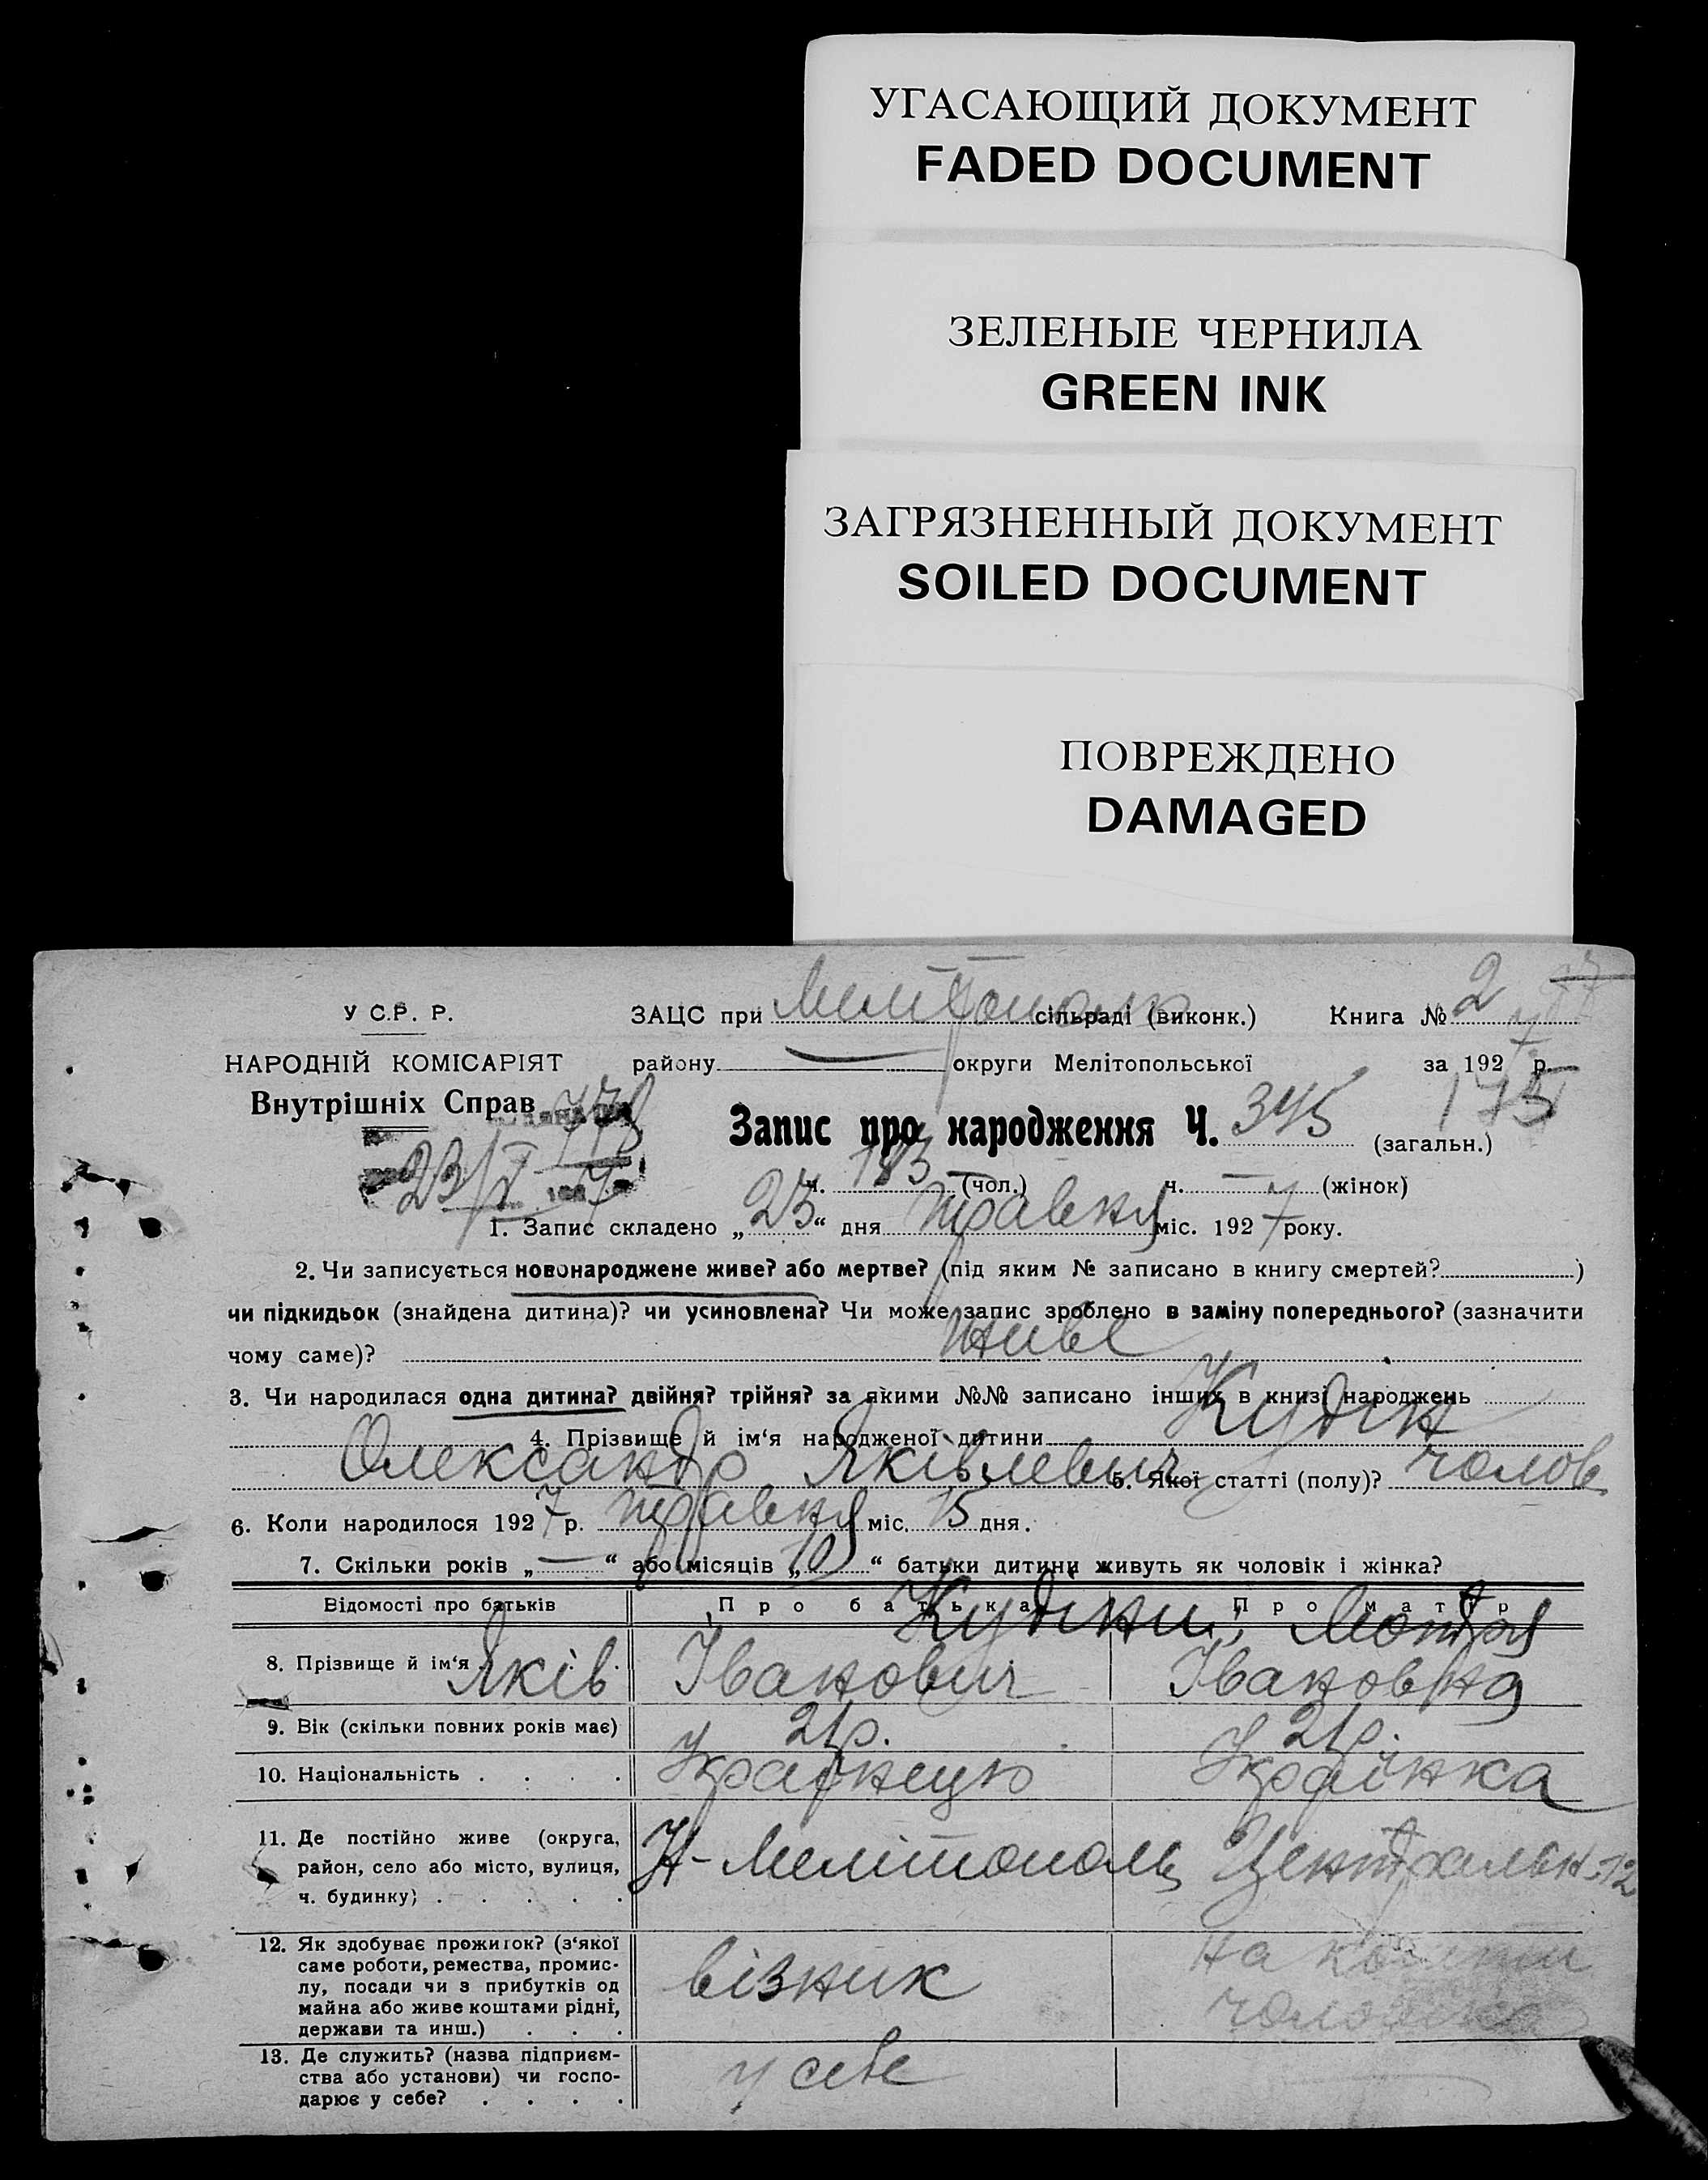 УГАСАЮЩИЙ ДОКУМЕНТ
FADED DOCUMENT
ЗЕЛЕНЫЕ ЧЕРНИЛА
GREEN INK
ЗАГРЯЗНЕННЫЙ ДОКУМЕНТ
SOILED DOCUMENT
ПОВРЕЖДЕНО
DAMAGED
У С.Р. Р. ЗАЦС при сільраді (виконк.) Книга № 2
НАРОДНІЙ КОМІСАРІЯТ району — округи Мелітопольської за 1927 р.
Внутрішніх Справ 778 175
Запис про народження Ч. 345 (загальн.)
23/V 7 ч. 183 (чол.) ч. — (жінок)
1. Запис складено „23“ дня травня міс. 1927 року.
2. Чи записується новонароджене живе? або мертве? (під яким № записано в книгу смертей? )
чи підкидьок (знайдена дитина)? чи усиновлена? Чи може запис зроблено в заміну попереднього? (зазначити
чому саме)? живе
3. Чи народилася одна дитина? двійня? трійня? за якими №№ записано інших в книзі народжень
4. Прізвище й ім‘я народженої дитини Кудін
Олександр Яківлевич 5. Якої статті (полу)? чолов
6. Коли народилося 1927 р. травня міс. 15 дня.
7. Скільки років „—“ або місяців „10“ батьки дитини живуть як чоловік і жінка?
Відомості про батьків Про батька Про матір
Кудіни, Мотря
8. Прізвище й ім‘я Яків Іванович Івановна
9. Вік (скільки повних років має) 21р. 21р.
10. Національність . . . . Українець Українка
11. Де постійно живе (округа,
район, село або місто, вулиця,
ч. будинку) . . . . . Н-Мелітополь Централън. 12
12. Як здобуває прожиток? (з‘якої
саме роботи, ремества, промис-
лу, посади чи з прибутків од
майна або живе коштами рідні,
держави та инш.) . . . візник на кошти
чоловіка
13. Де служить? (назва підприєм-
ства або установи) чи госпо-
дарює у себе? . . . . у себе